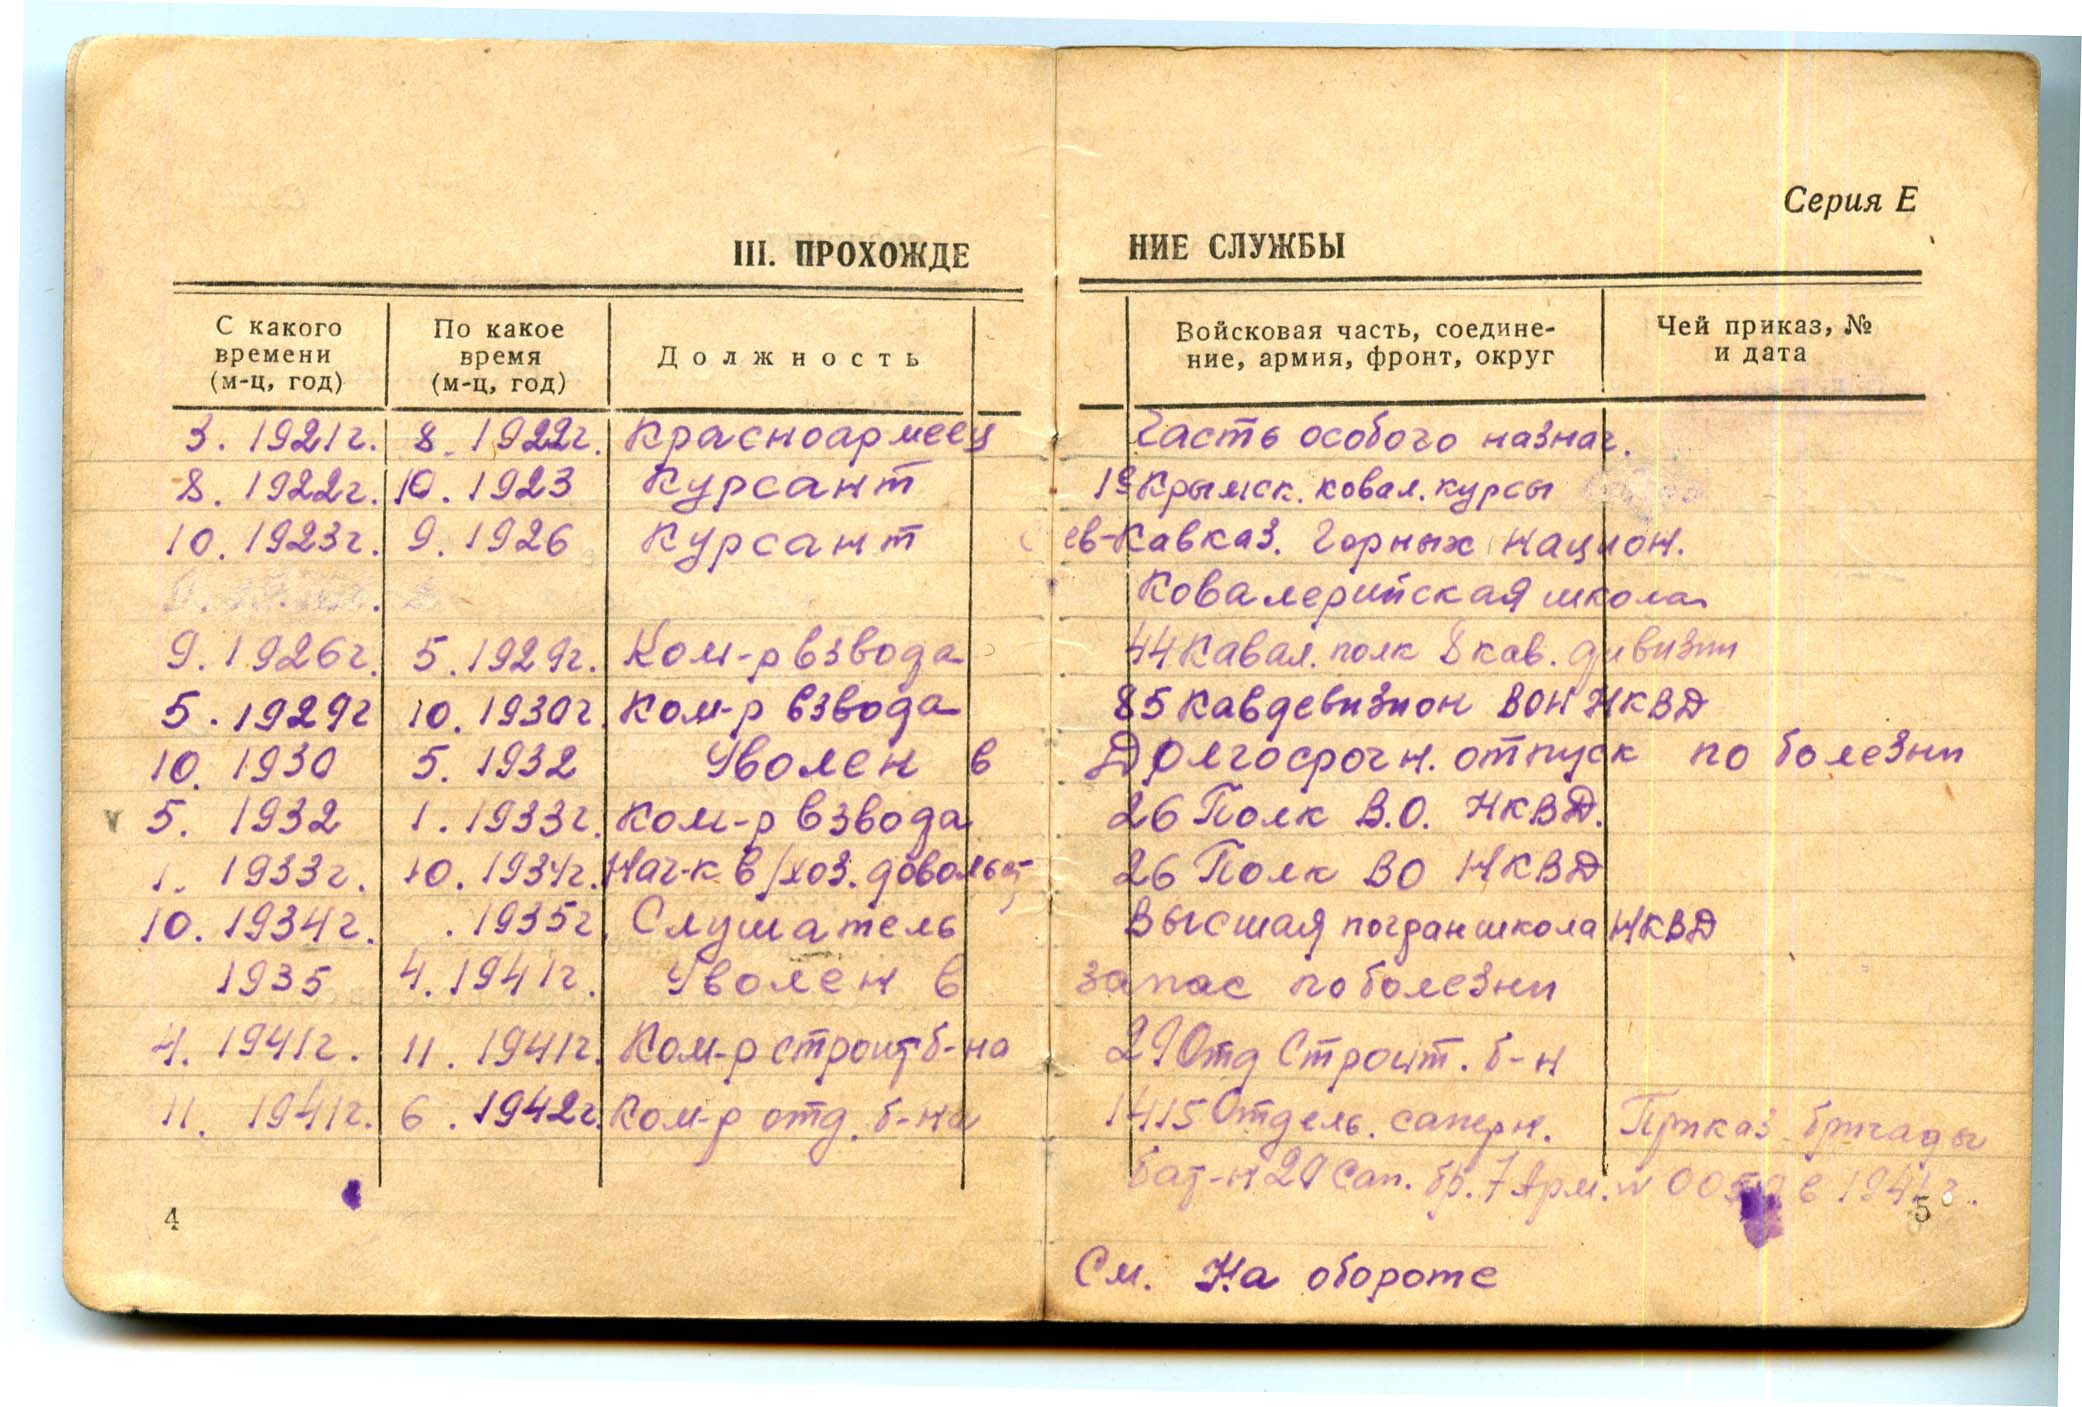 Серия Е
III. ПРОХОЖДЕ НИЕ СЛУЖБЫ
С какого времени (м-ц, год) По какое время (м-ц, год) Должность Войсковая часть, соедине- ние, армия, фронт, округ Чей приказ, № и дата
3. 1921г. 8. 1922г. Красноармеец Часть особого назнач.
8. 1922г. 10. 1923 Курсант 1е Крымск. ковал. курсы
10. 1923г. 9. 1926 Курсант Сев-Кавказ. Горных Национ.
Ковалерийская школа
9. 1926г. 5. 1929г. Ком-р взвода 44 Кавал. полк 8 кав. дивизии
5. 1929г 10. 1930г. Ком-р взвода 85 Кавдевизион ВОН НКВД
10. 1930 5. 1932 Уволен в Долгосрочн. отпуск по болезни
v 5. 1932 1. 1933г. Ком-р взвода 26 Полк В.О. НКВД.
1. 1933г. 10. 1934г. Нач-к в/хоз. довольст 26 Полк ВО НКВД
10. 1934г. . 1935г. Слушатель Высшая погран школа НКВД
1935 4. 1941г. Уволен в запас по болезни
4. 1941г. 11. 1941г. Ком-р строит б-на 29 Отд Строит. б-н
11. 1941г. 6. 1942г. Ком-р отд. б-на 1415 Отдель. саперн. Приказ бригады
бат-н 29 Сап. бр. 7 Арм. № 1941г.
4 5
См. На обороте